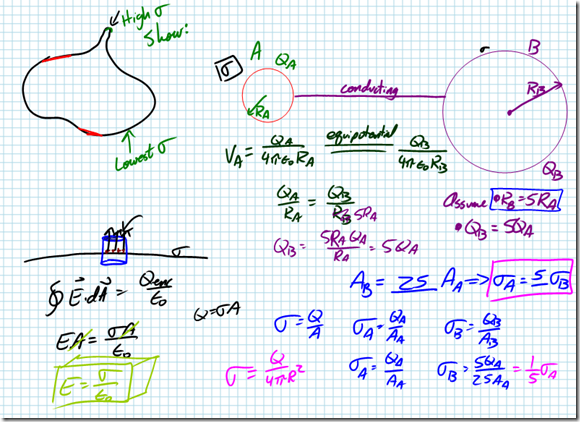 High σ
Show:
Lowest σ
σ
A
Q_A
R_A
conducting
B
R_B
Q_B
V_A = Q_A/(4πε₀R_A) equipotential Q_B/(4πε₀R_B)
Q_A/R_A = Q_B/R_B 5R_A
Q_B = 5R_A Q_A/R_A = 5Q_A
Assume • R_B = 5R_A
• Q_B = 5Q_A
A_B = 25 A_A ⇒ σ_A = 5 σ_B
σ
∮ E⃗·dA⃗ = Q_enc/ε₀
Q=σA
EA = σA/ε₀
E = σ/ε₀
σ = Q/A σ_A = Q_A/A_A σ_B = Q_B/A_B
σ = Q/4πR² σ_A = Q_A/A_A σ_B = 5Q_A/25A_A = 1/5 σ_A